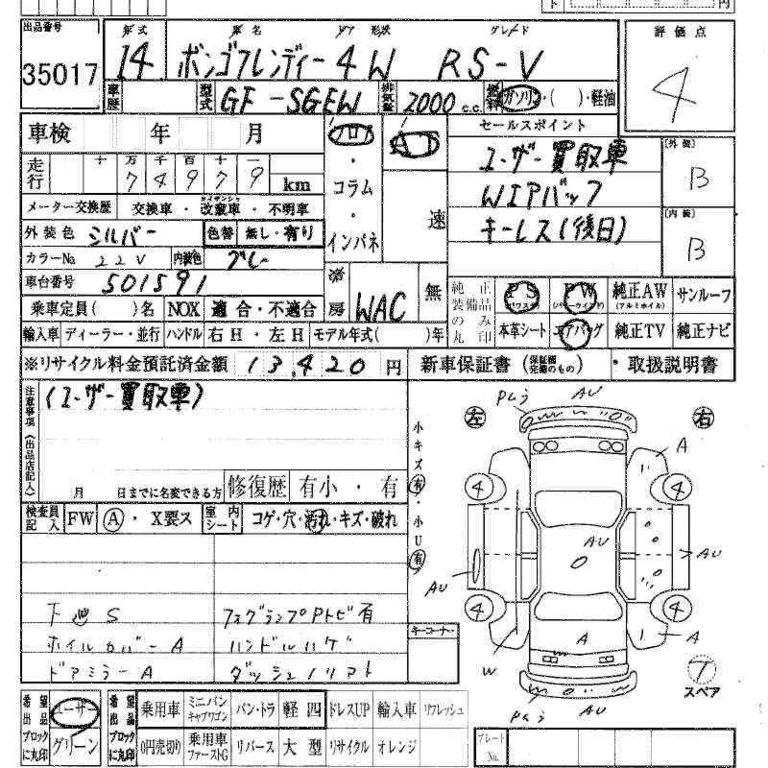 ト 円
出品番号 年式 車名 ドア 形状 グレード 評価点
35017 14 ボンゴフレンディー 4W RS-V 4
車歴 型式 GF-SGEW 排気量 2000 c.c. 燃料 ガソリン・( )・軽油
車検 年 月 フロア・コラム・インパネ AT 速 セールスポイント
ユーザー買取車 〔外装〕 B
走行 十万千百十一 7 4 9 7 9 km
WIPバック
メーター交換歴 交換車・改ざん車・不明車
キーレス(後日) 〔内装〕 B
外装色 シルバー 色替 無し・有り
カラーNo. 22V 内装色 グレー
車台番号 501591
冷房 WAC 無 純正装備品のみ丸印 PS(パワステ) PW(パワーウインド) 純正AW(アルミホイル) サンルーフ
乗車定員( )名 NOX 適合・不適合
本革シート エアバッグ 純正TV 純正ナビ
輸入車 ディーラー・並行 ハンドル 右H・左H モデル年式( )年
※リサイクル料金預託済金額 13,420 円 新車保証書 (保証書完備のもの)・取扱説明書
注意事項(出品店記入) (ユーザー買取車)
月 日までに名変できる方 修復歴 有小・有
小キズ有・小U有
検査員記入 FW A・X要ス 室内シート コゲ・穴・汚れ・キズ・破れ
下廻 S フォグランプPトビ有
ホイルカバー A ハンドルハゲ
ドアミラー A ダッシュノリアト
キーコーナー
Pムラ AU
左 右
A
4 4
AU
AU AU
4 4
W A A
T スペア
Pムラ AU
希望出品ブロックに丸印 ユーザー グリーン
希望出品ブロックに丸印 乗用車 ミニバンキャブワゴン バン・トラ 軽四 ドレスUP 輸入車 リフレッシュ
0円売切り 乗用車ファーストG リバース 大型 リサイクル オレンジ
プレートNo.